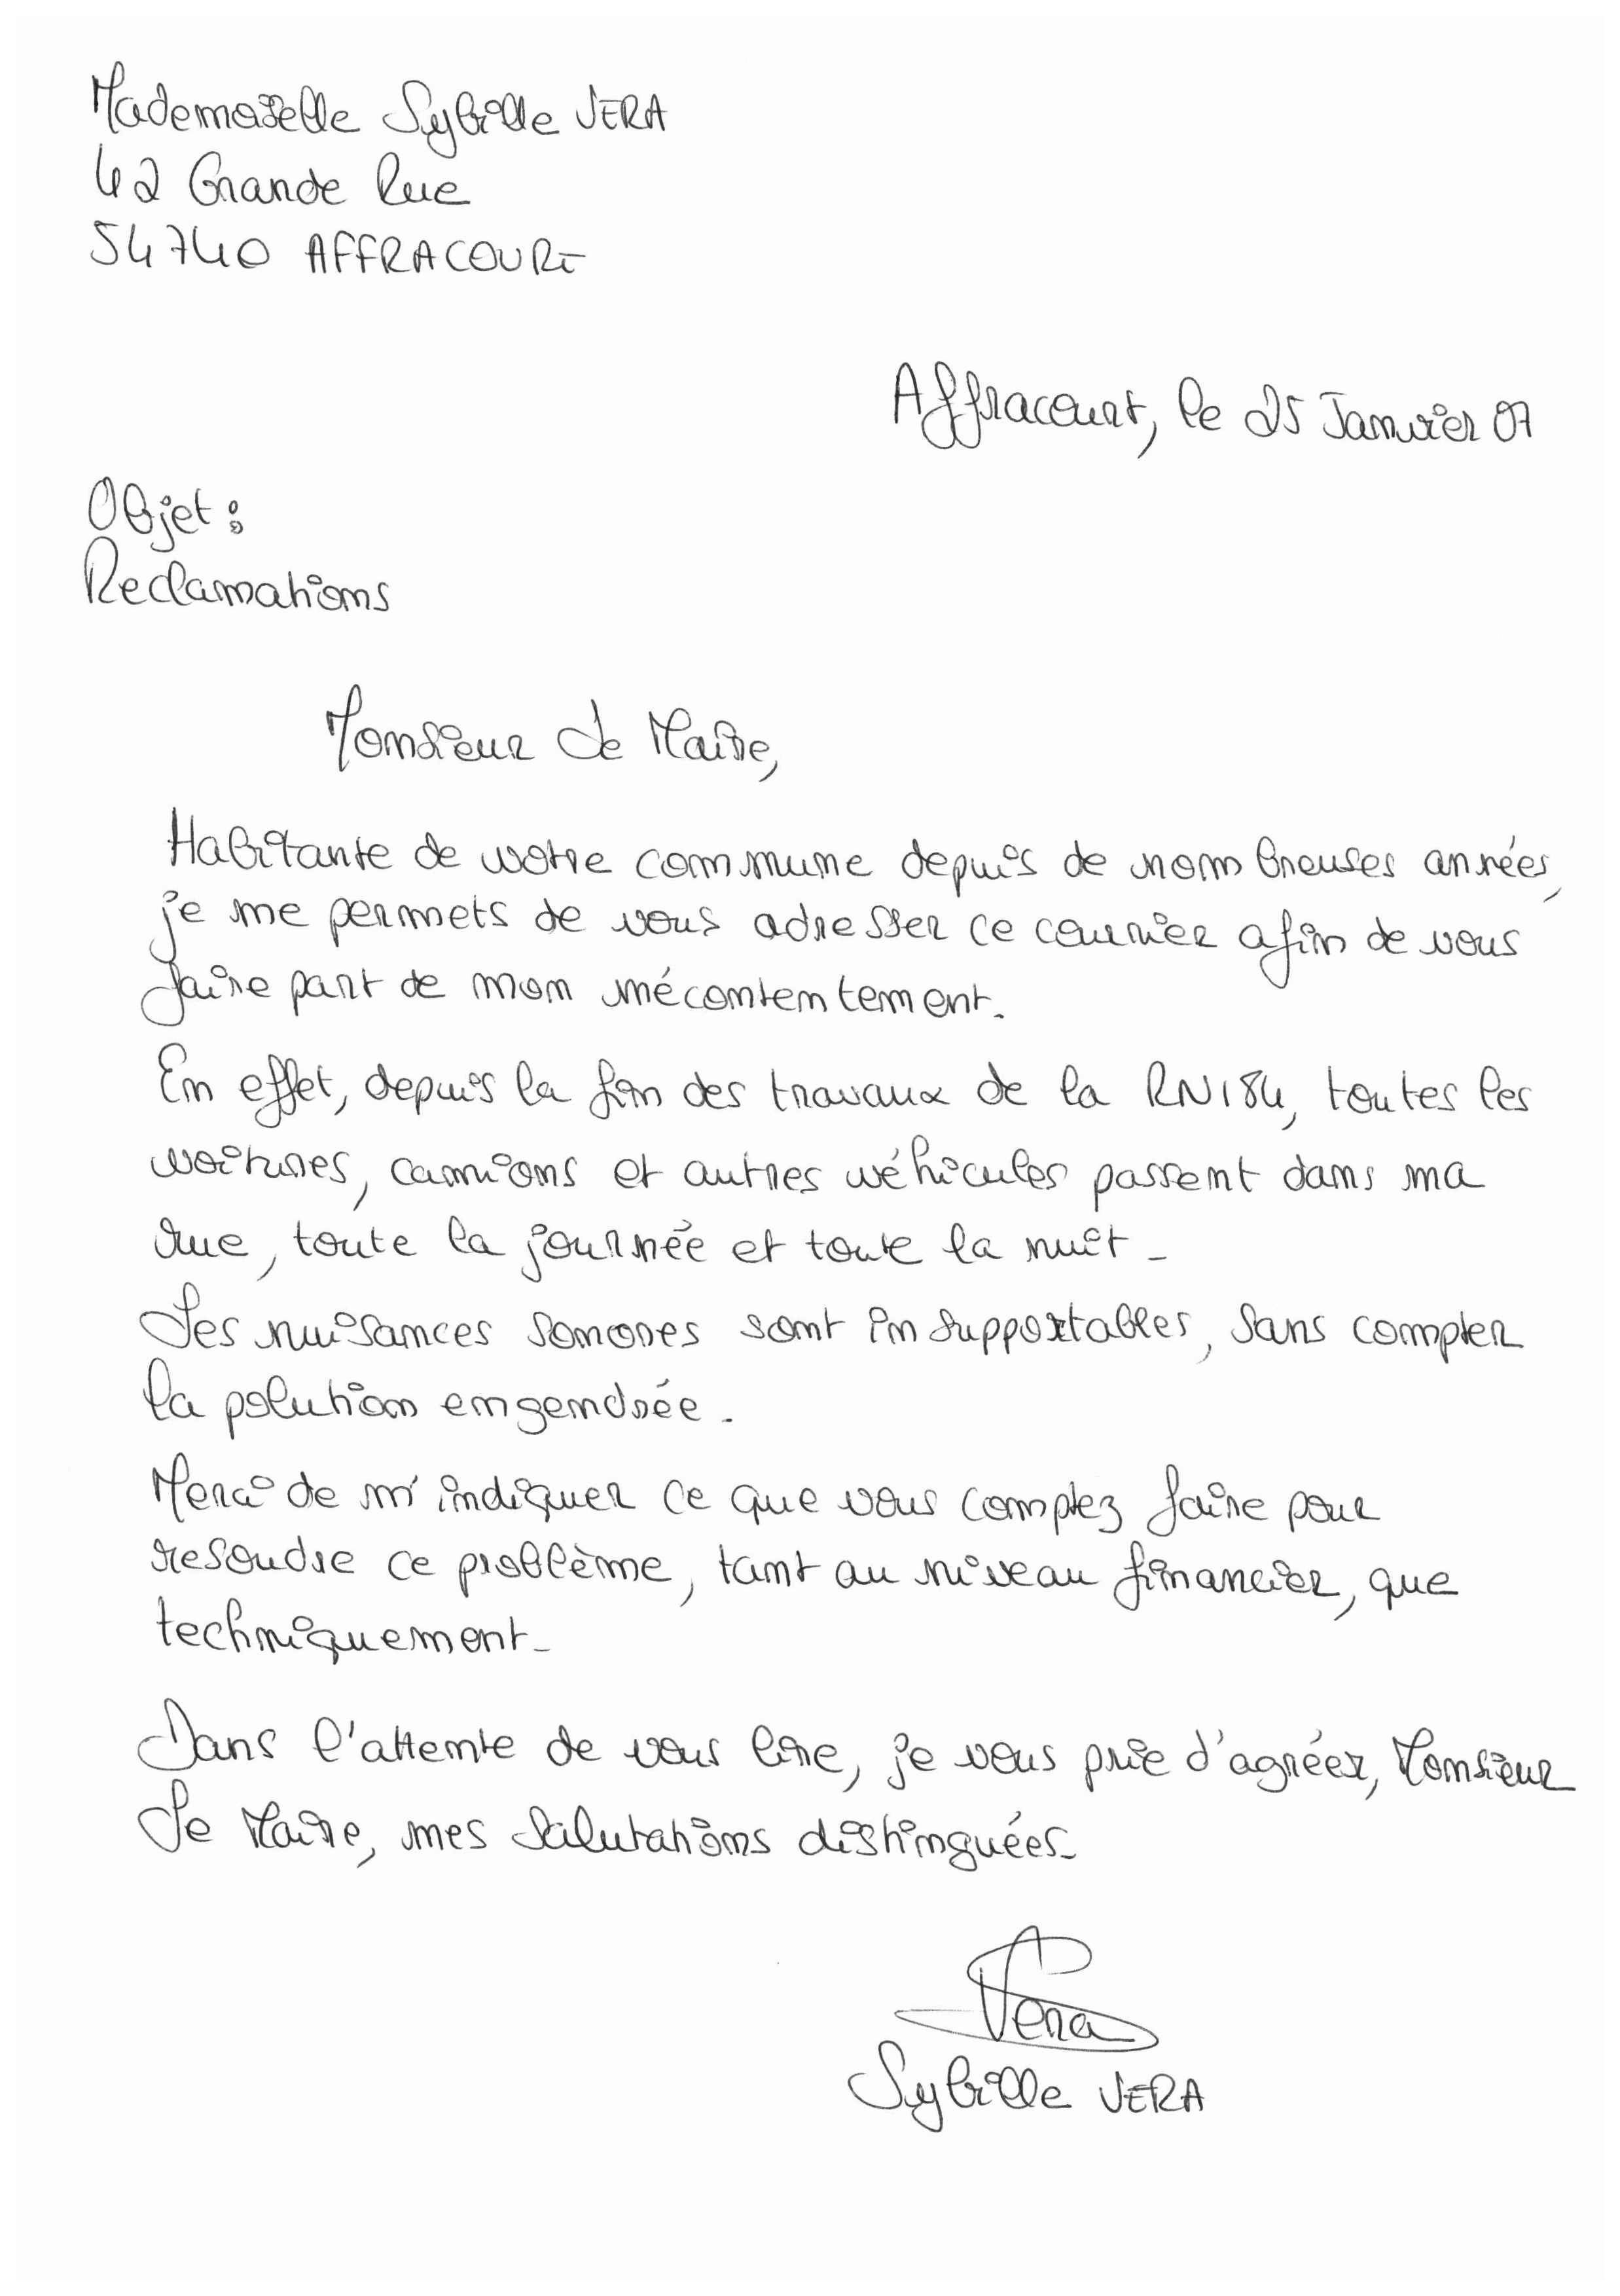 Mademoiselle Sybille VERA
42 Grande Rue
54740 AFFRACOURT
Affracourt, le 25 Janvier 07
Objet :
Reclamations
Monsieur Le Maire,
Habitante de votre commune depuis de nombreuses années,
je me permets de vous adresser ce courrier afin de vous
faire part de mon mécontentement.
En effet, depuis la fin des travaux de la RN184, toutes les
voitures, camions et autres véhicules passent dans ma
rue, toute la journée et toute la nuit.
Les nuisances sonores sont insupportables, sans compter
la polution engendrée.
Merci de m'indiquer ce que vous comptez faire pour
resoudre ce problème, tant au niveau financier, que
techniquement.
Dans l'attente de vous lire, je vous prie d'agréer, Monsieur
Le Maire, mes salutations distinguées.
Vera
Sybille VERA